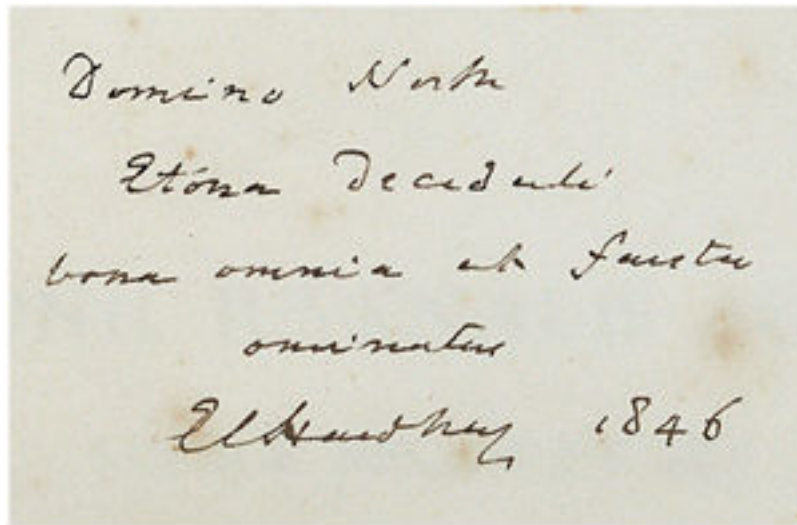 Domino North
Etóna Decedenti
bona omnia et fausta
ominatur
E C Hawtrey 1846